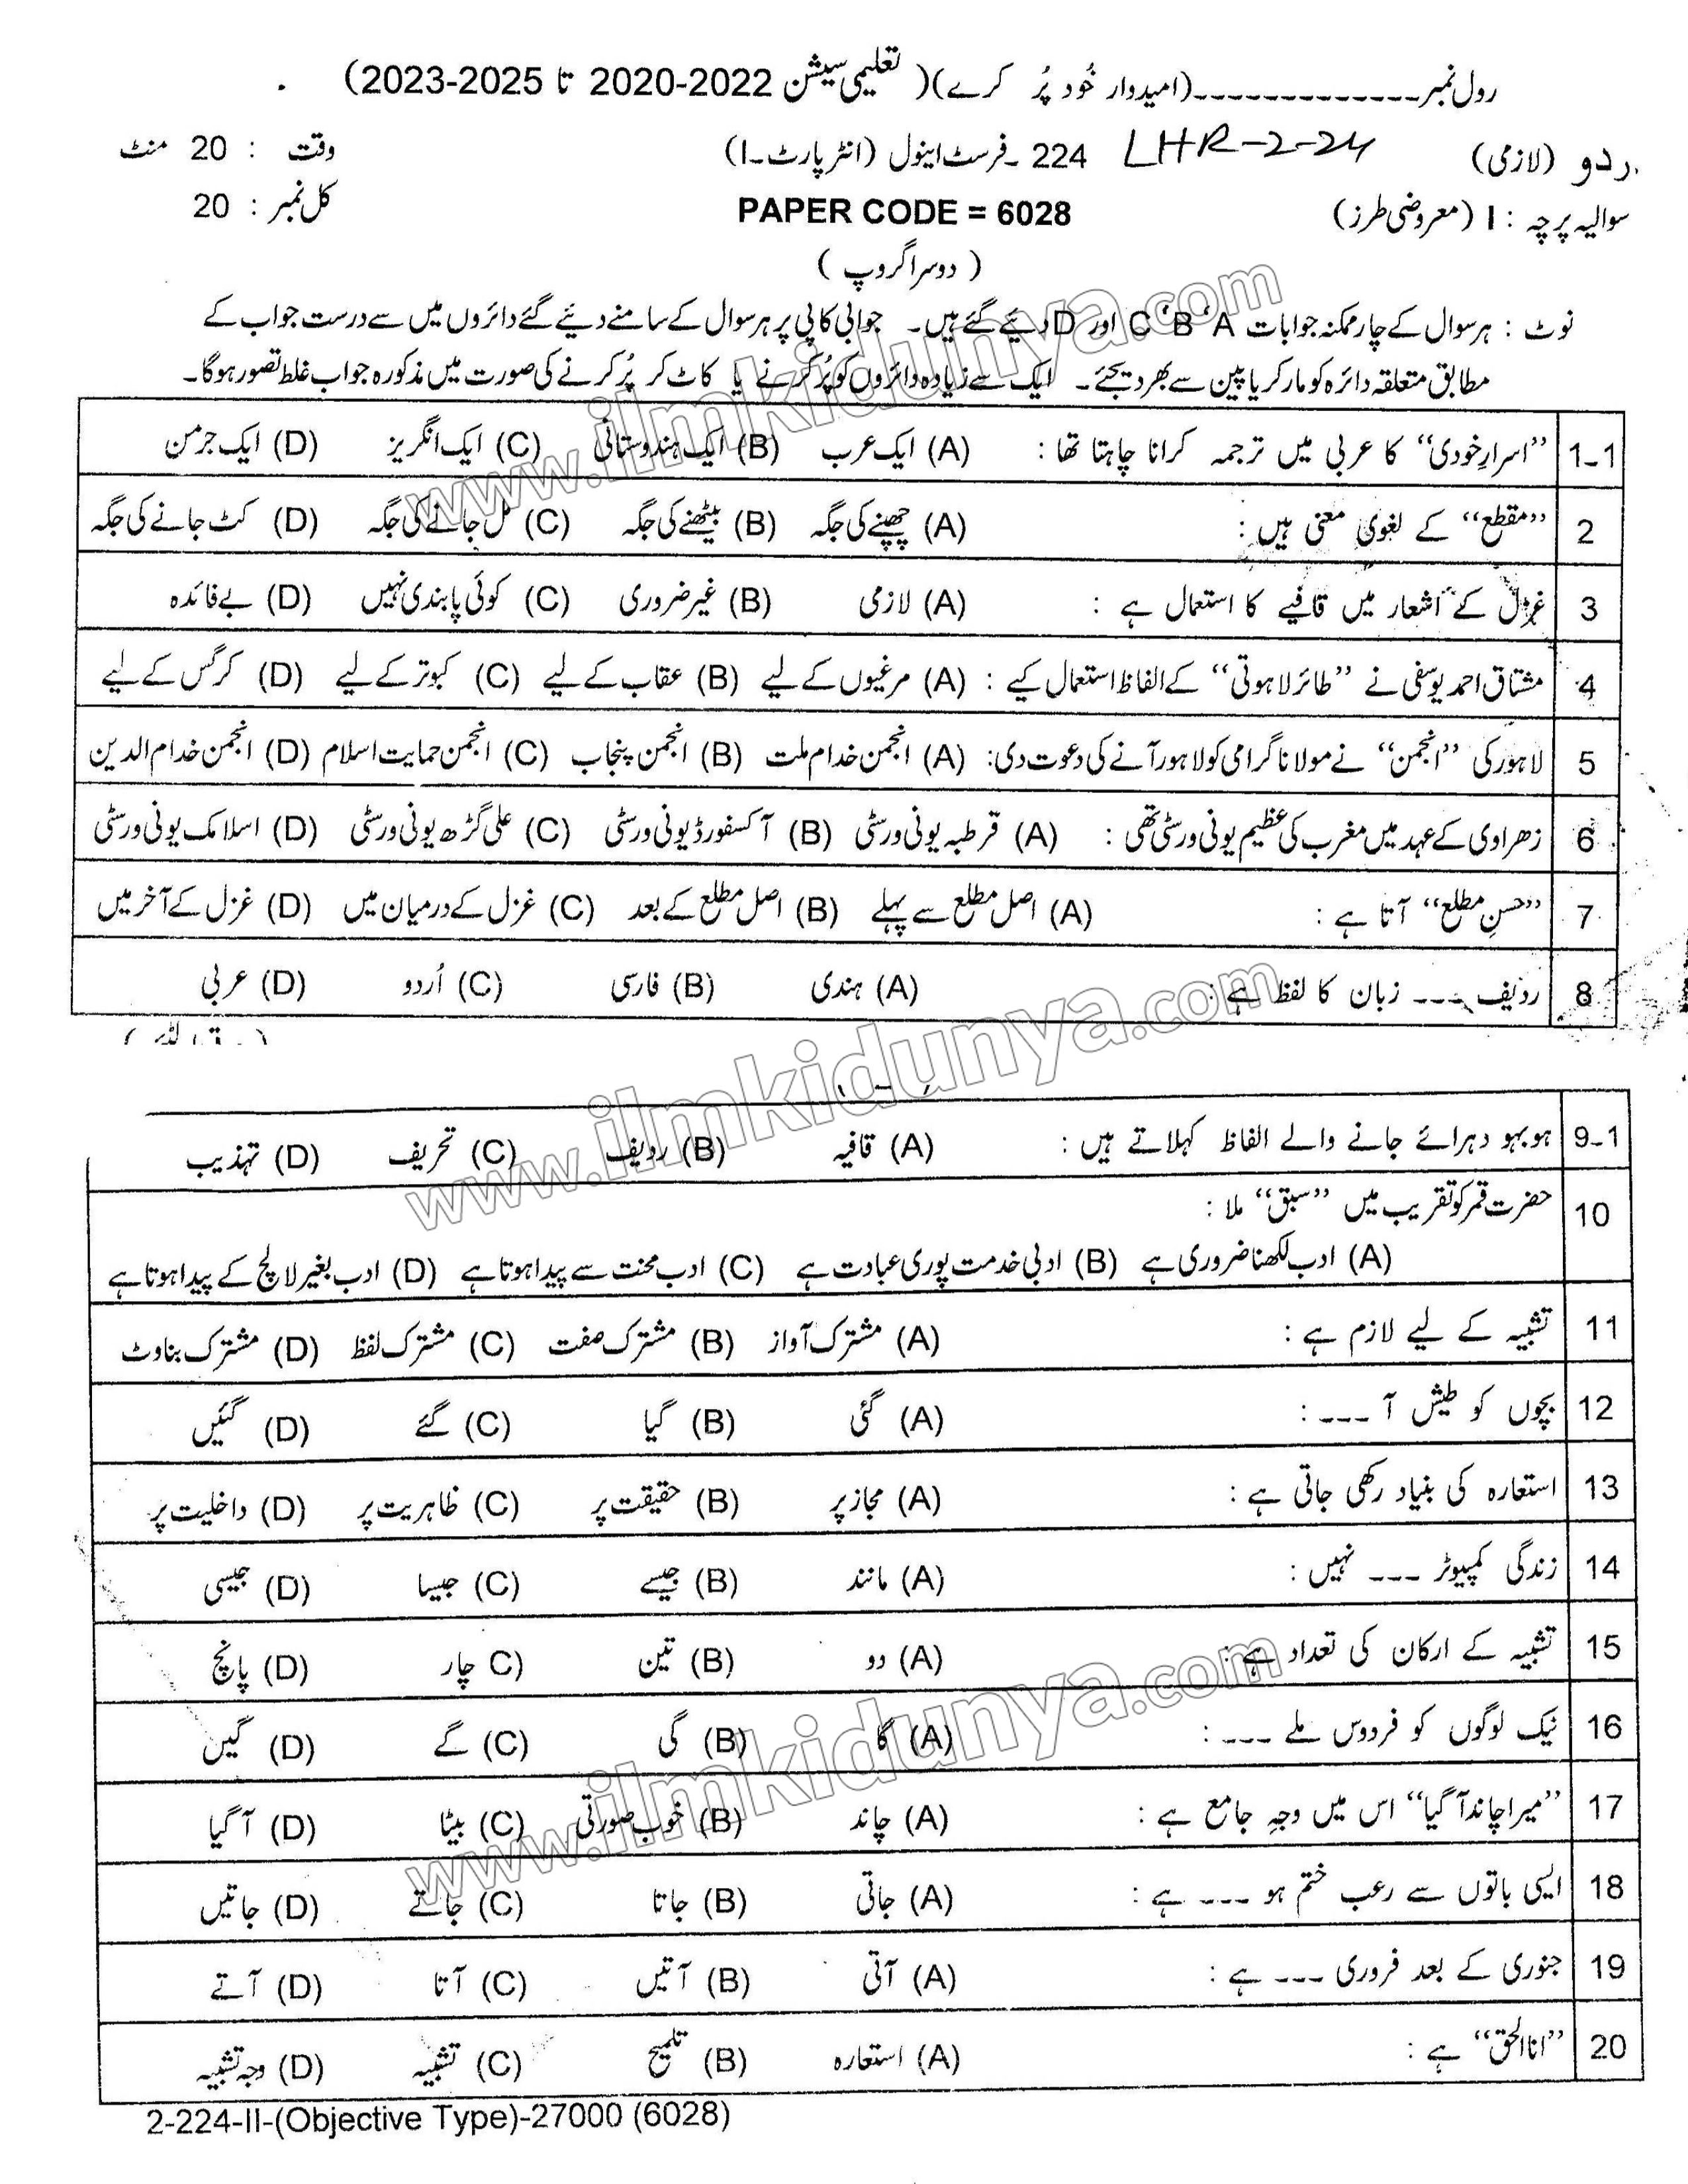 رول نمبر-------------(امیدوار خُود پُر کرے)( تعلیمی سیشن 2020-2022 تا 2023-2025)
ردو (لازمی) LHR-2-24 224 ۔فرسٹ اینول (انٹر پارٹ-I) وقت : 20 منٹ
سوالیہ پرچہ : I (معروضی طرز) PAPER CODE = 6028 کل نمبر : 20
( دوسرا گروپ )
نوٹ : ہر سوال کے چار ممکنہ جوابات A ‘B ‘C اور D دیئے گئے ہیں۔ جوابی کاپی پر ہر سوال کے سامنے دیئے گئے دائروں میں سے درست جواب کے
مطابق متعلقہ دائرہ کو مارکر یا پین سے بھر دیجئے۔ ایک سے زیادہ دائروں کو پُر کرنے یا کاٹ کر پُر کرنے کی صورت میں مذکورہ جواب غلط تصور ہوگا۔
1-1 ”اسرارِ خودی“ کا عربی میں ترجمہ کرانا چاہتا تھا : (A) ایک عرب (B) ایک ہندوستائی (C) ایک انگریز (D) ایک جرمن
2 ”مقطع“ کے لغوی معنی ہیں : (A) چھپنے کی جگہ (B) بیٹھنے کی جگہ (C) مل جانے کی جگہ (D) کٹ جانے کی جگہ
3 غزل کے اشعار میں قافیے کا استعمال ہے : (A) لازمی (B) غیر ضروری (C) کوئی پابندی نہیں (D) بے فائدہ
4 مشتاق احمد یوسفی نے ”طائر لاہوتی“ کے الفاظ استعمال کیے : (A) مرغیوں کے لیے (B) عقاب کے لیے (C) کبوتر کے لیے (D) کرگس کے لیے
5 لاہور کی ”انجمن“ نے مولانا گرامی کو لاہور آنے کی دعوت دی: (A) انجمن خدام ملت (B) انجمن پنجاب (C) انجمن حمایت اسلام (D) انجمن خدام الدین
6 زھراوی کے عہد میں مغرب کی عظیم یونی ورسٹی تھی : (A) قرطبہ یونی ورسٹی (B) آکسفورڈ یونی ورسٹی (C) علی گڑھ یونی ورسٹی (D) اسلامک یونی ورسٹی
7 ”حسنِ مطلع“ آتا ہے : (A) اصل مطلع سے پہلے (B) اصل مطلع کے بعد (C) غزل کے درمیان میں (D) غزل کے آخر میں
8 ردیف --- زبان کا لفظ ہے : (A) ہندی (B) فارسی (C) اُردو (D) عربی
9-1 ہوبہو دہرائے جانے والے الفاظ کہلاتے ہیں : (A) قافیہ (B) ردیف (C) تحریف (D) تہذیب
10 حضرت قمر کو تقریب میں ”سبق“ ملا :
(A) ادب لکھنا ضروری ہے (B) ادبی خدمت پوری عبادت ہے (C) ادب محنت سے پیدا ہوتا ہے (D) ادب بغیر لالچ کے پیدا ہوتا ہے
11 تشبیہ کے لیے لازم ہے : (A) مشترک آواز (B) مشترک صفت (C) مشترک لفظ (D) مشترک بناوٹ
12 بچوں کو طیش آ --- : (A) گئی (B) گیا (C) گئے (D) گئیں
13 استعارہ کی بنیاد رکھی جاتی ہے : (A) مجاز پر (B) حقیقت پر (C) ظاہریت پر (D) داخلیت پر
14 زندگی کمپیوٹر --- نہیں : (A) مانند (B) جیسے (C) جیسا (D) جیسی
15 تشبیہ کے ارکان کی تعداد ہے : (A) دو (B) تین (C چار (D) پانچ
16 نیک لوگوں کو فردوس ملے --- : (A) گا (B) گی (C) گے (D) گیں
17 ”میرا چاند آگیا“ اس میں وجہِ جامع ہے : (A) چاند (B) خوب صورتی (C) بیٹا (D) آگیا
18 ایسی باتوں سے رعب ختم ہو --- ہے : (A) جاتی (B) جاتا (C) جاتے (D) جاتیں
19 جنوری کے بعد فروری --- ہے : (A) آتی (B) آتیں (C) آتا (D) آتے
20 ”انا الحق“ ہے : (A) استعارہ (B) تلمیح (C) تشبیہ (D) وجہ تشبیہ
2-224-II-(Objective Type)-27000 (6028)
www.ilmkidunya.com
www.ilmkidunya.com
www.ilmkidunya.com